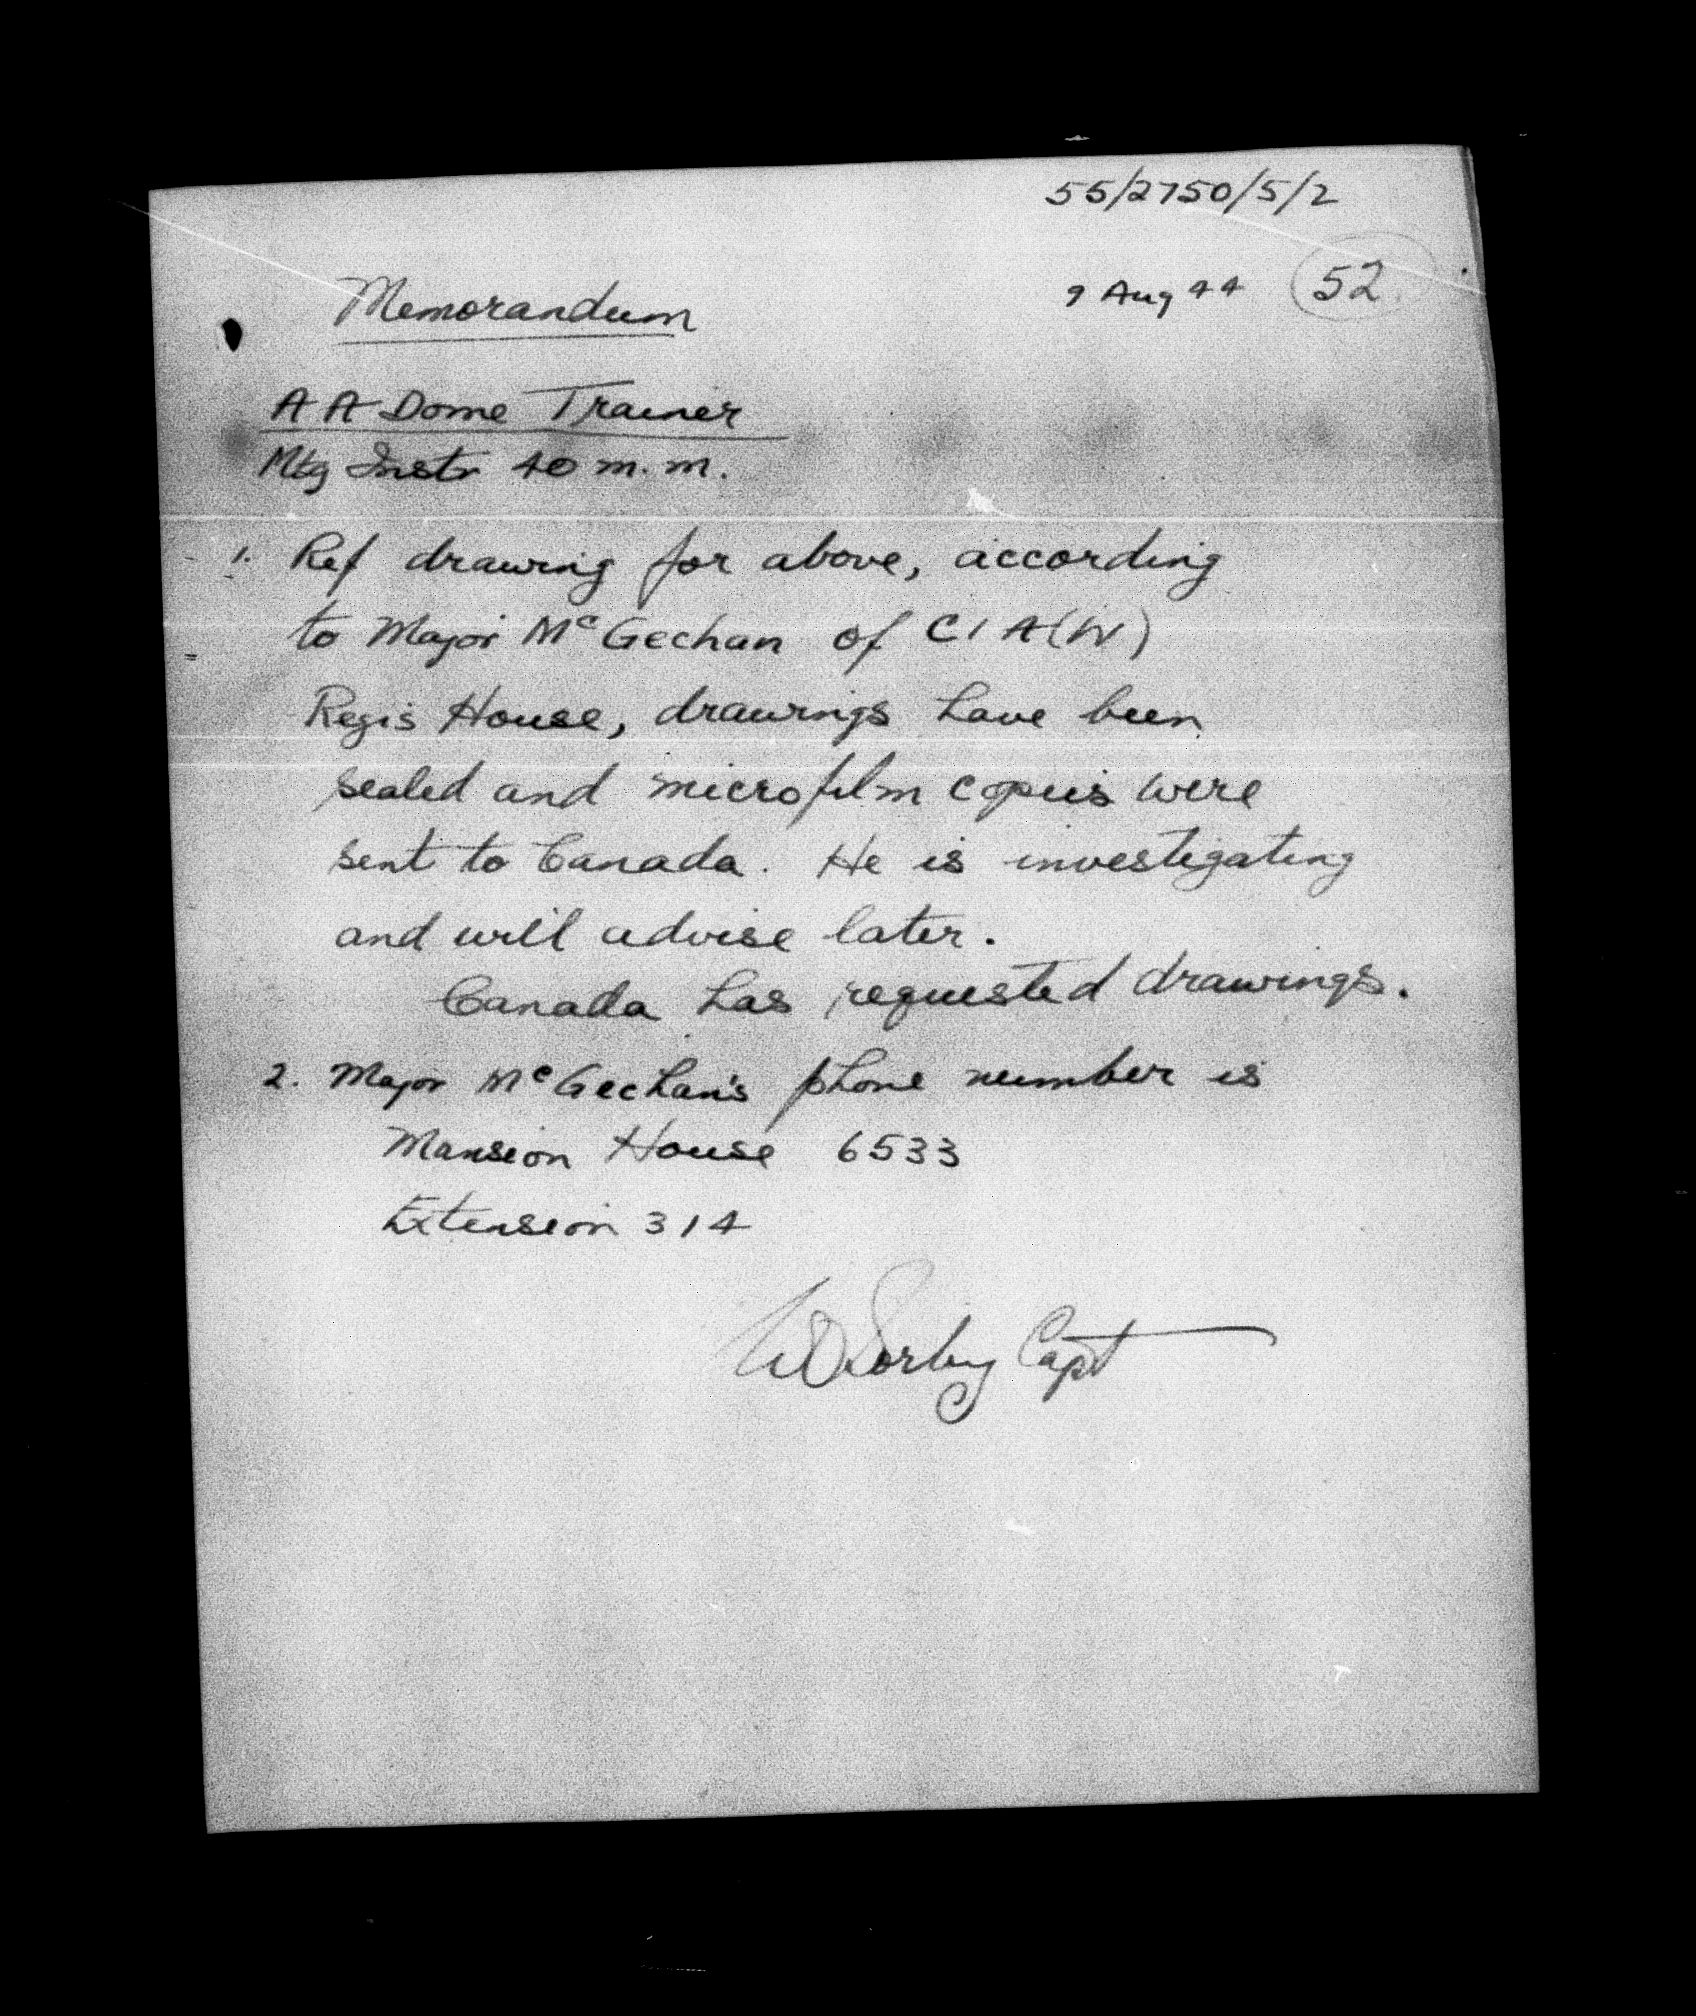 55/2750/5/2
9 Aug 44
52
Memorandum
A A Dome Trainer
Mtg Instr 40 m.m.
1. Ref drawing for above, according
to Major McGechan of C I A (W)
Regis House, drawings have been
sealed and microfilm copies were
sent to Canada. He is investigating
and will advise later.
Canada has requested drawings.
2. Major McGechan's phone number is
Mansion House 6533
Extension 314
WD Sorby Capt